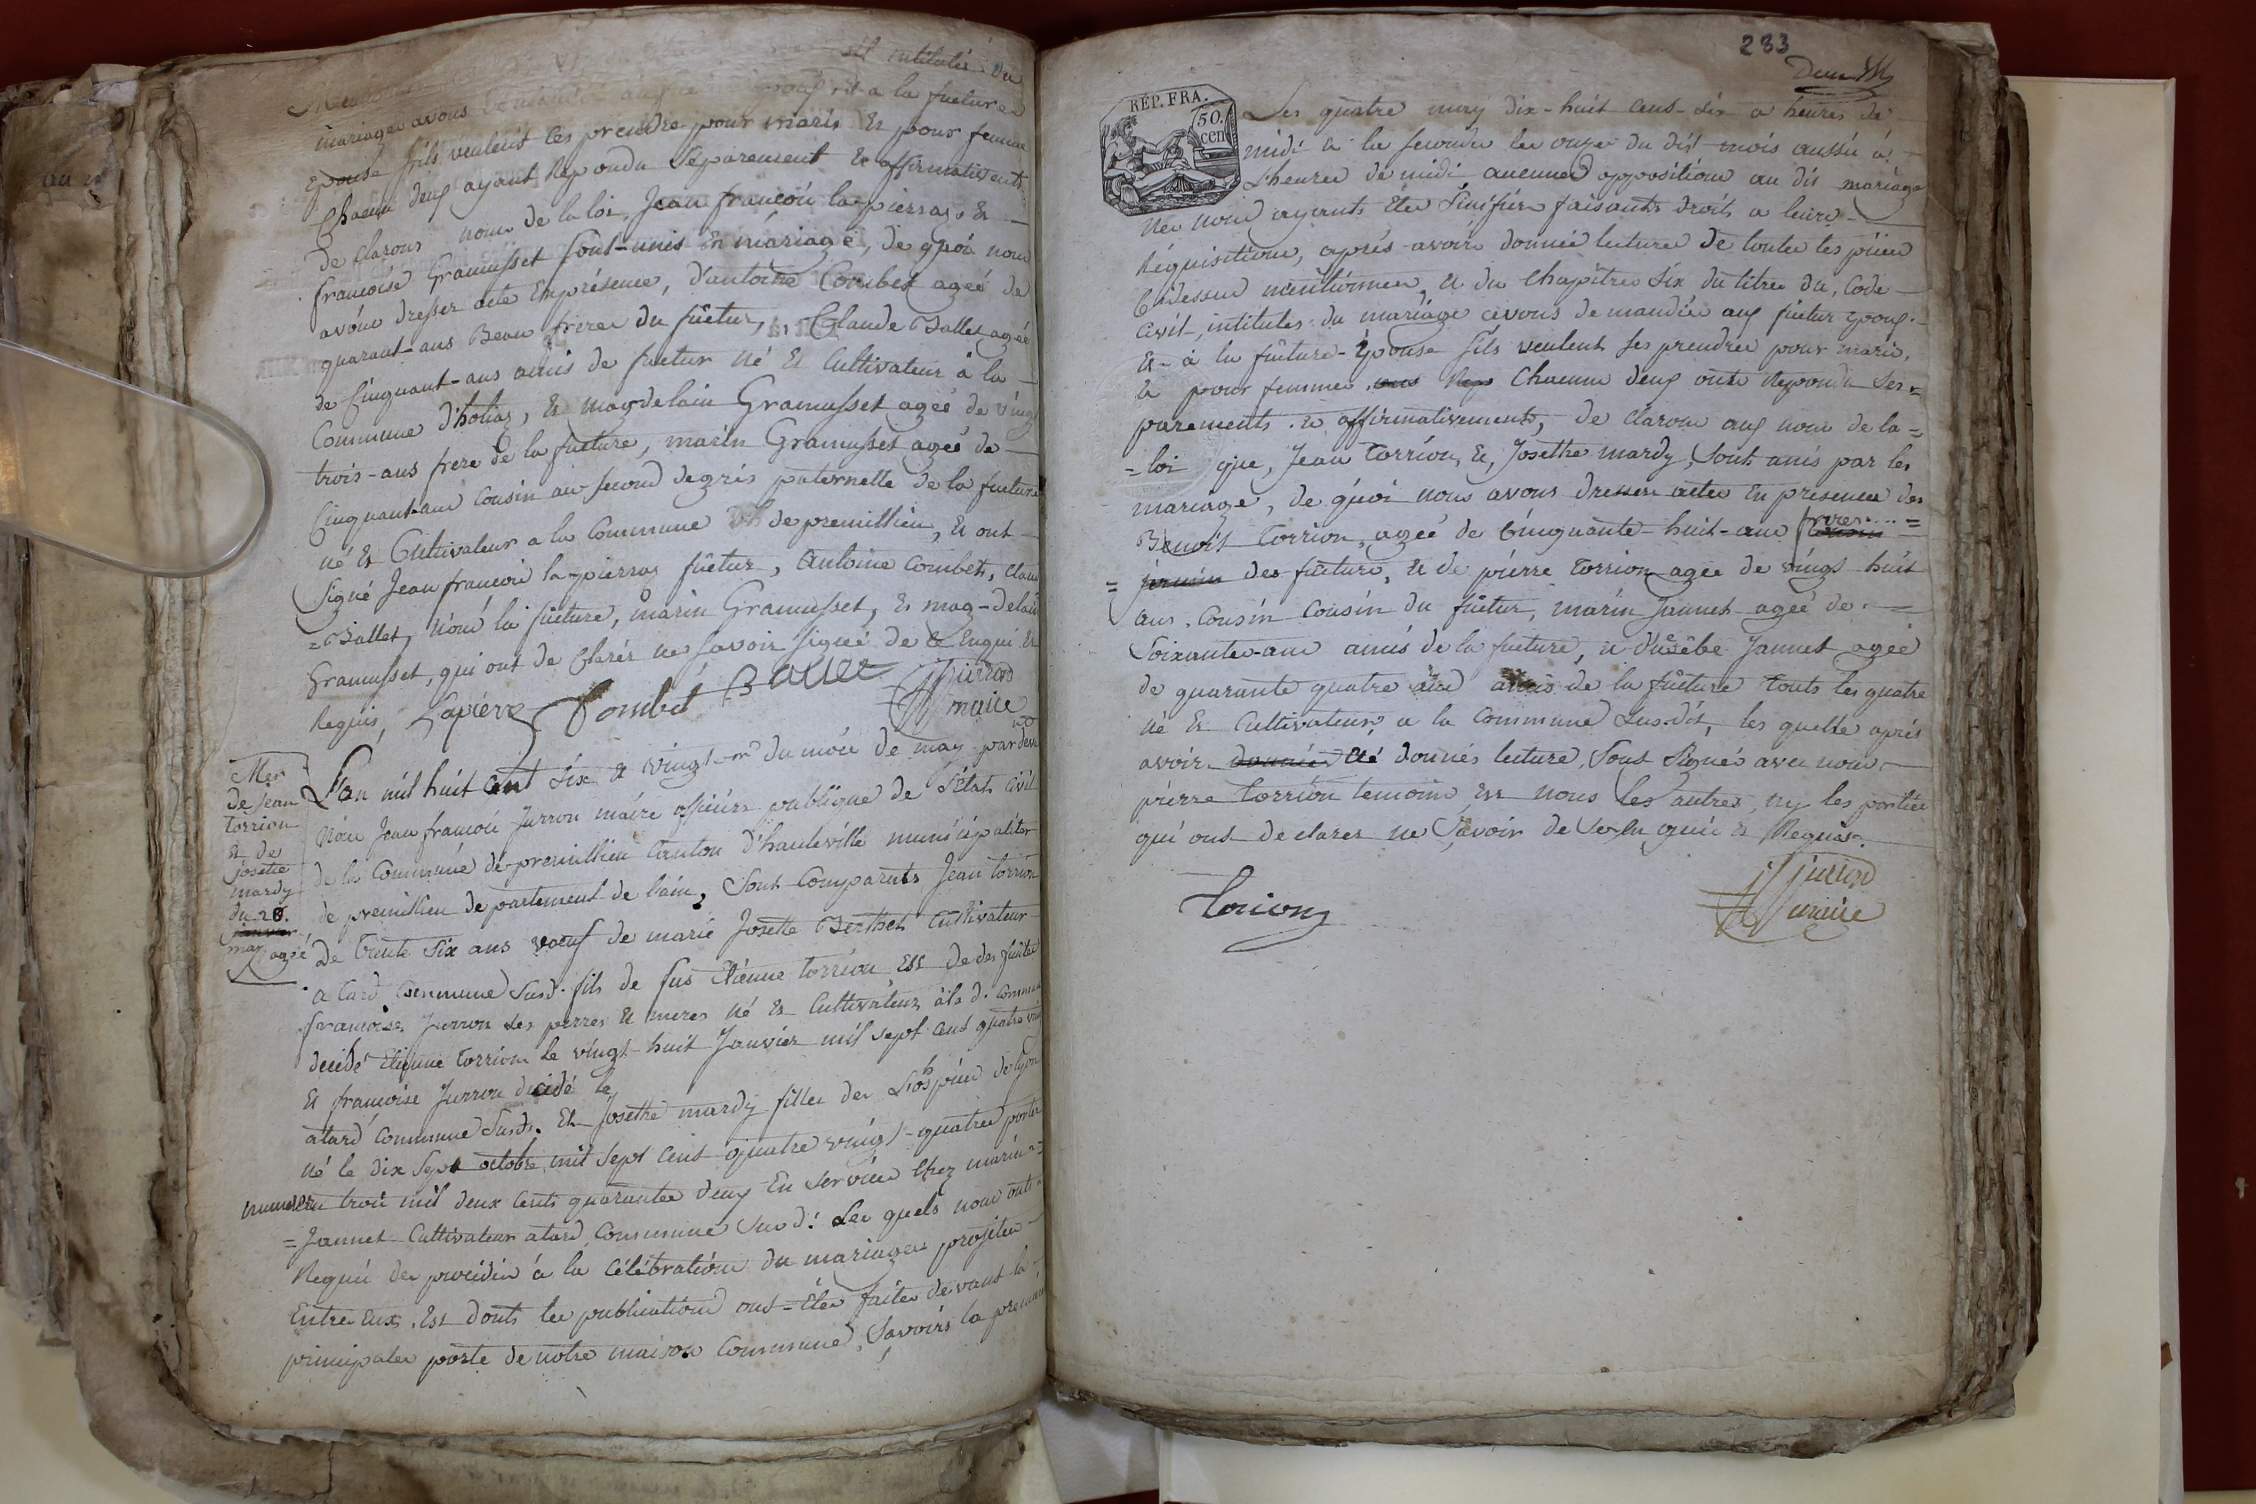 sil intitulés du
mariage avous a la fueture
Epouse sils veulent ses prendre pour maris Et pour femme
Chacun deux ayant Repondu Separement Et affirmativement
de clarons nom de la loi, Jean françoi lapierraz, Et
françoise Gramusset sont-unis En mariage, de quoi nous
avons dresser acte En présence, d'antoine Combet ageé de
quarant-ans Beau frere du fûetur, Et Claude Ballet ageé
de Cinquant-ans amis de fuetur né Et Cultivateur à la
Commune d'hotiaz, Et magdelain Gramusset ageé de vingt
trois-ans frere de la fueture, marin Gramusset ageé de
Cinquant-ans Cousin au second degrés paternelle de la fueture
né Et Cultivateur a la Commune de premillieu, Et ont
signé Jean françoi lapierraz fûetur, Antoine Combet, Claude
=Ballet, Nom la fûeture, marin Gramusset, Et mag-delain
Gramusset, qui ont de Clarér ne savoir signé de Enqui Et
Requis, Lapierre Combet Ballet JfJurron
maire
Mer
de Jean
Torrion
Et de
josette
mardy
du 20.
janvier
may
L'an mil huit Cent six Et vingt du mois de may par deva
Nou Jean françoi Jurron maire officier publique de l'état Civil
de la Commune de premillieu Canton d'hauteville municipaliter
de premillieu departement de l'ain, sont Comparuts Jean torrion
agé de trente six ans voeuf de marie Josette Berthet Cultivateur
a tard Commune susd. fils de fus Etienne torrion Est de des funte
françoise Jurron ses perres Et meres né Et Cultivateur à la d. Commune
decidé Etienne torrion le vingt-huit Janvier mil sept Cent quatre vint
Et françoise Jurron decidé le
atard Commune Susd. Et Josethe mardy fillee der Lhospice de lyon
né le dix sept octobre mil sept Cent quatre vingt-quatree porter
numeros trois mil deux Cents quarantee deux En service Chez marin=
=Jannet Cultivateur atard Commune Sus d! Les quels nous onts
Requis der procidér à la Célébration du mariager projeter
Entre Eux. Est donts les publications ont-Eter faiter devant la
principaler porte de notre maison Commune, Savoirs la premier
283
REP. FRA.
50.
cen
Les quatre may dix-huit Cens-six a heures de
midi Et la seconde les onze du dit mois aussú à
l'heurer de midi aucunee oppositions au dis mariage
Ne nous ayants Eter Sinifier faisants droits a leurs
Réquisitions, aprés-avoir donneé lectures de toutee les piéces
Cidessus mentiónnee, Et du Chapitre six du titree du, Code
Civil, intitulés du mariage avons de mandér aux fûetur Epoux.
Et-à la fûeture-Epouse sils veulents ses prendree pour marie,
Et pour femmee. Chacunu deux onts Repondu Ses=
parements. Et affirmativements, de Clarons aux nom de la=
=loi que, Jean torrion Et, Josethe mardy, sont unis par les
mariage, de quoi nous avons dresser actee En presence des
Benoit torrion, ageé de Cinquante-huit-ans freres....=
= jermain des fûeture, Et de pierre torrion ageé de vingt huit
ans. Cousin Cousin du fûetur, marin Jannet ageé de.
Soixante-ans amis de la fueture, Et d'usèbe Jannet ageé
de quarante quatre ans amis de la fûeture touts les quatre
né Et Cultivateurs a la Commune sus.dit, les quelle aprés
avoir donnée Eté donnés lecture, sont signés avec nous
pierre torrion temoins Et nous les autres, ny les parties
qui ont de clarer ne savoir de Requis.
Torion
jf jurron
maire